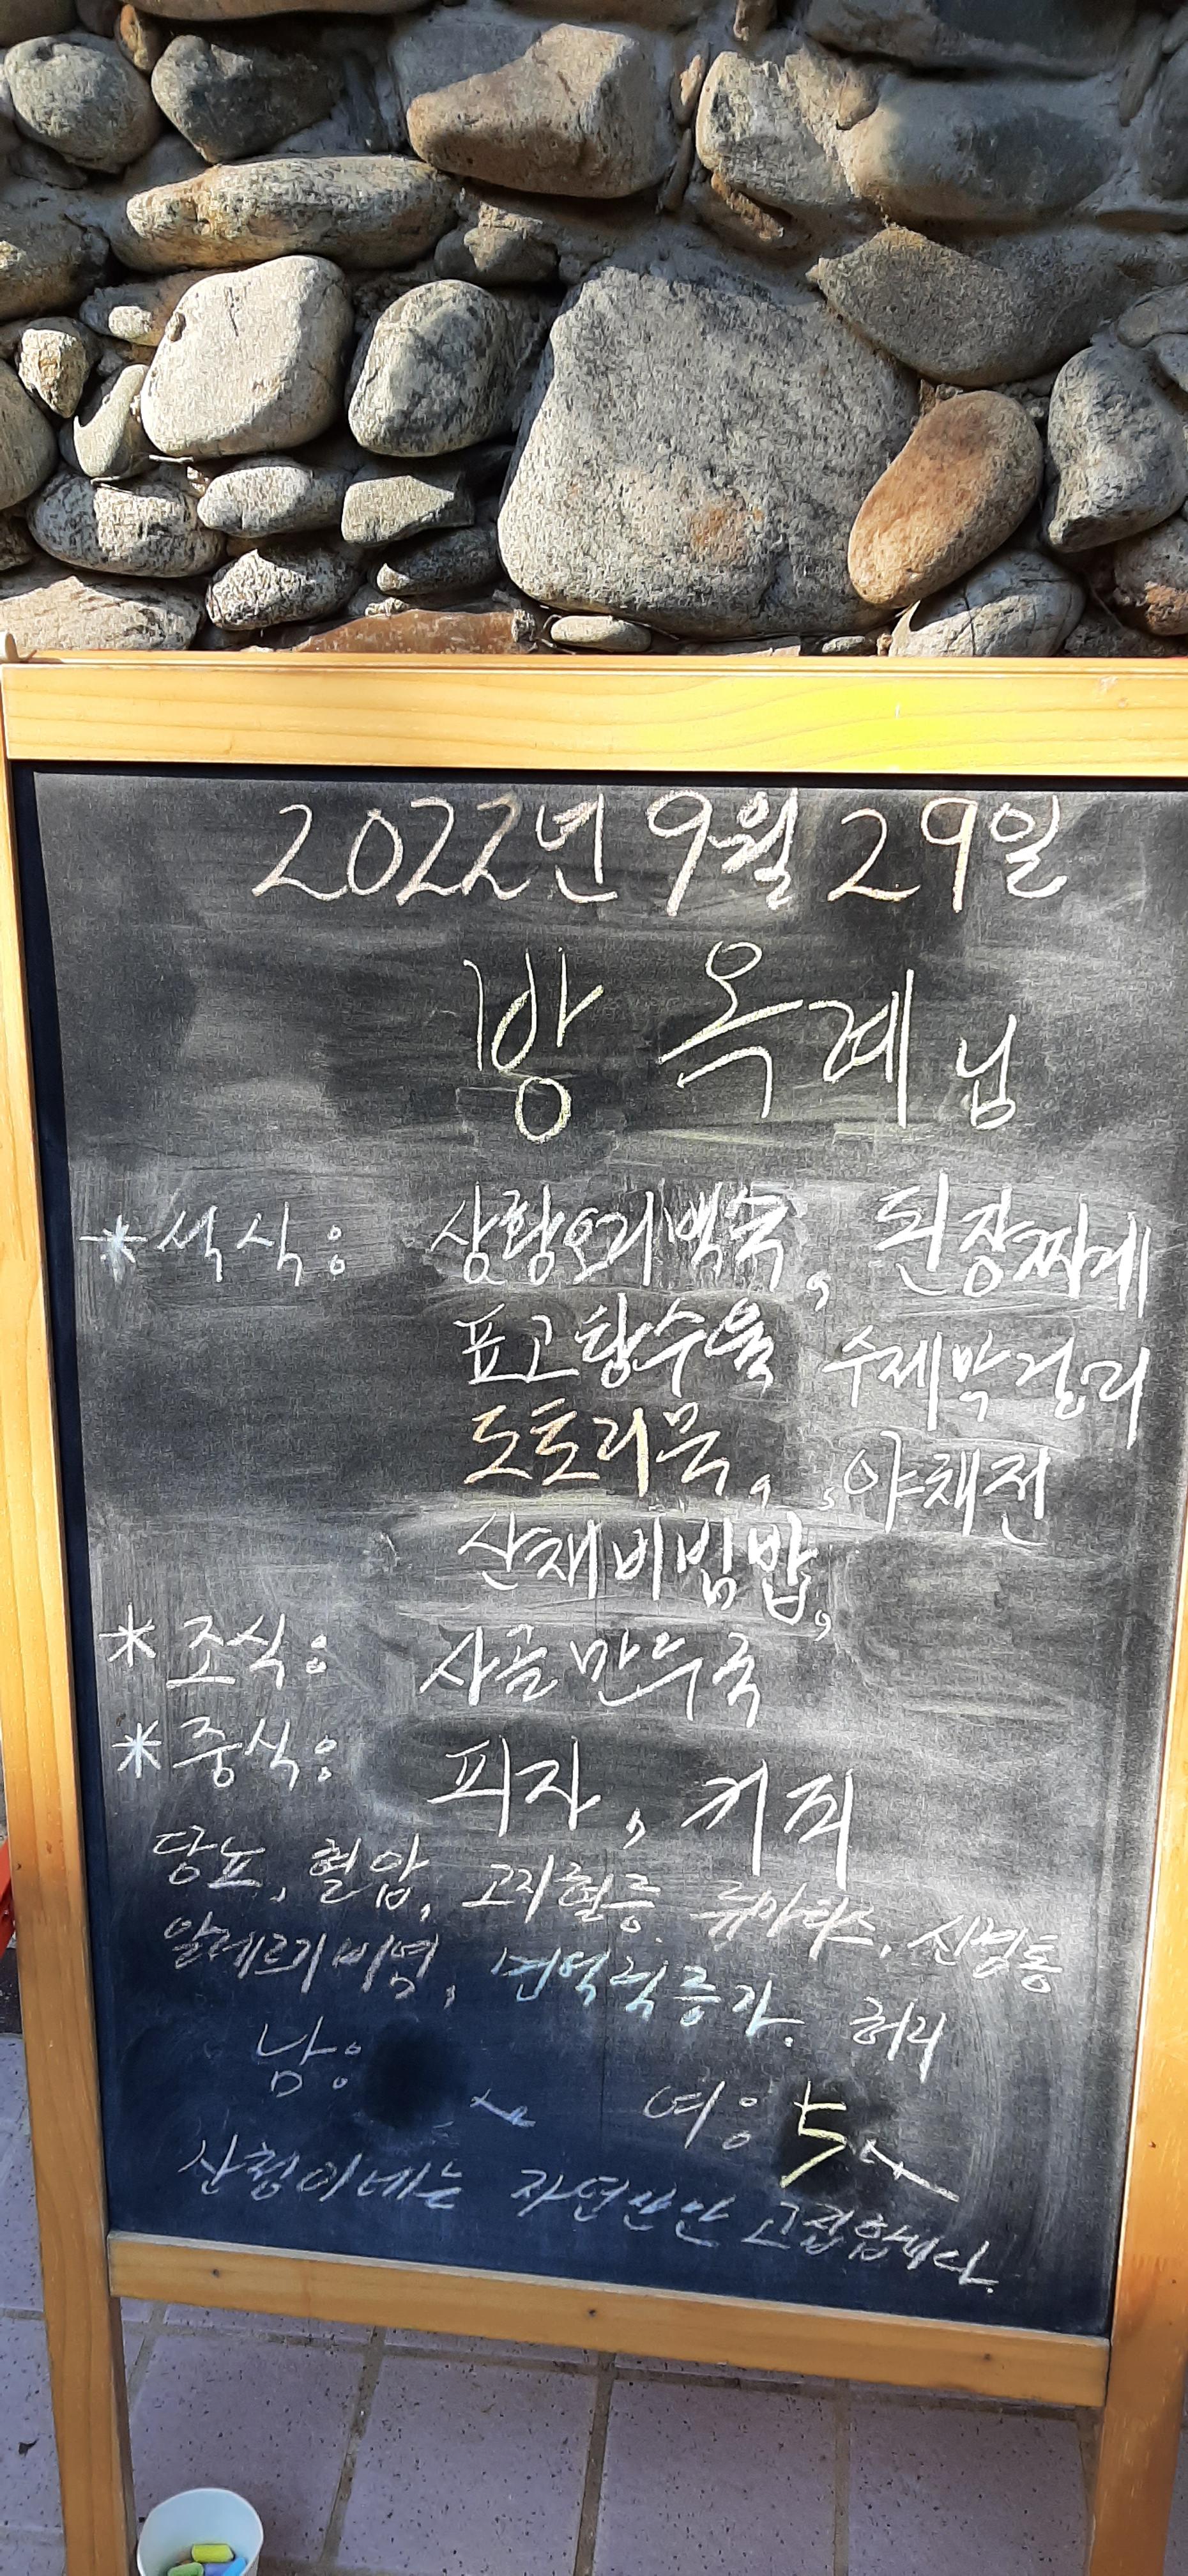 2022년 9월 29일
방 옥례 님
* 석식: 상황오리백숙, 된장찌게
표고탕수육 수제막걸리
도토리묵, 야채전
산채비빔밥,
* 조식: 사골만두국
* 중식: 피자, 커피
당뇨, 혈압, 고지혈증. 류마티스, 신경통
알레르기비염, 면역력증가. 허리
남: 여: 5人
산청이네는 자연산만 고집합니다.